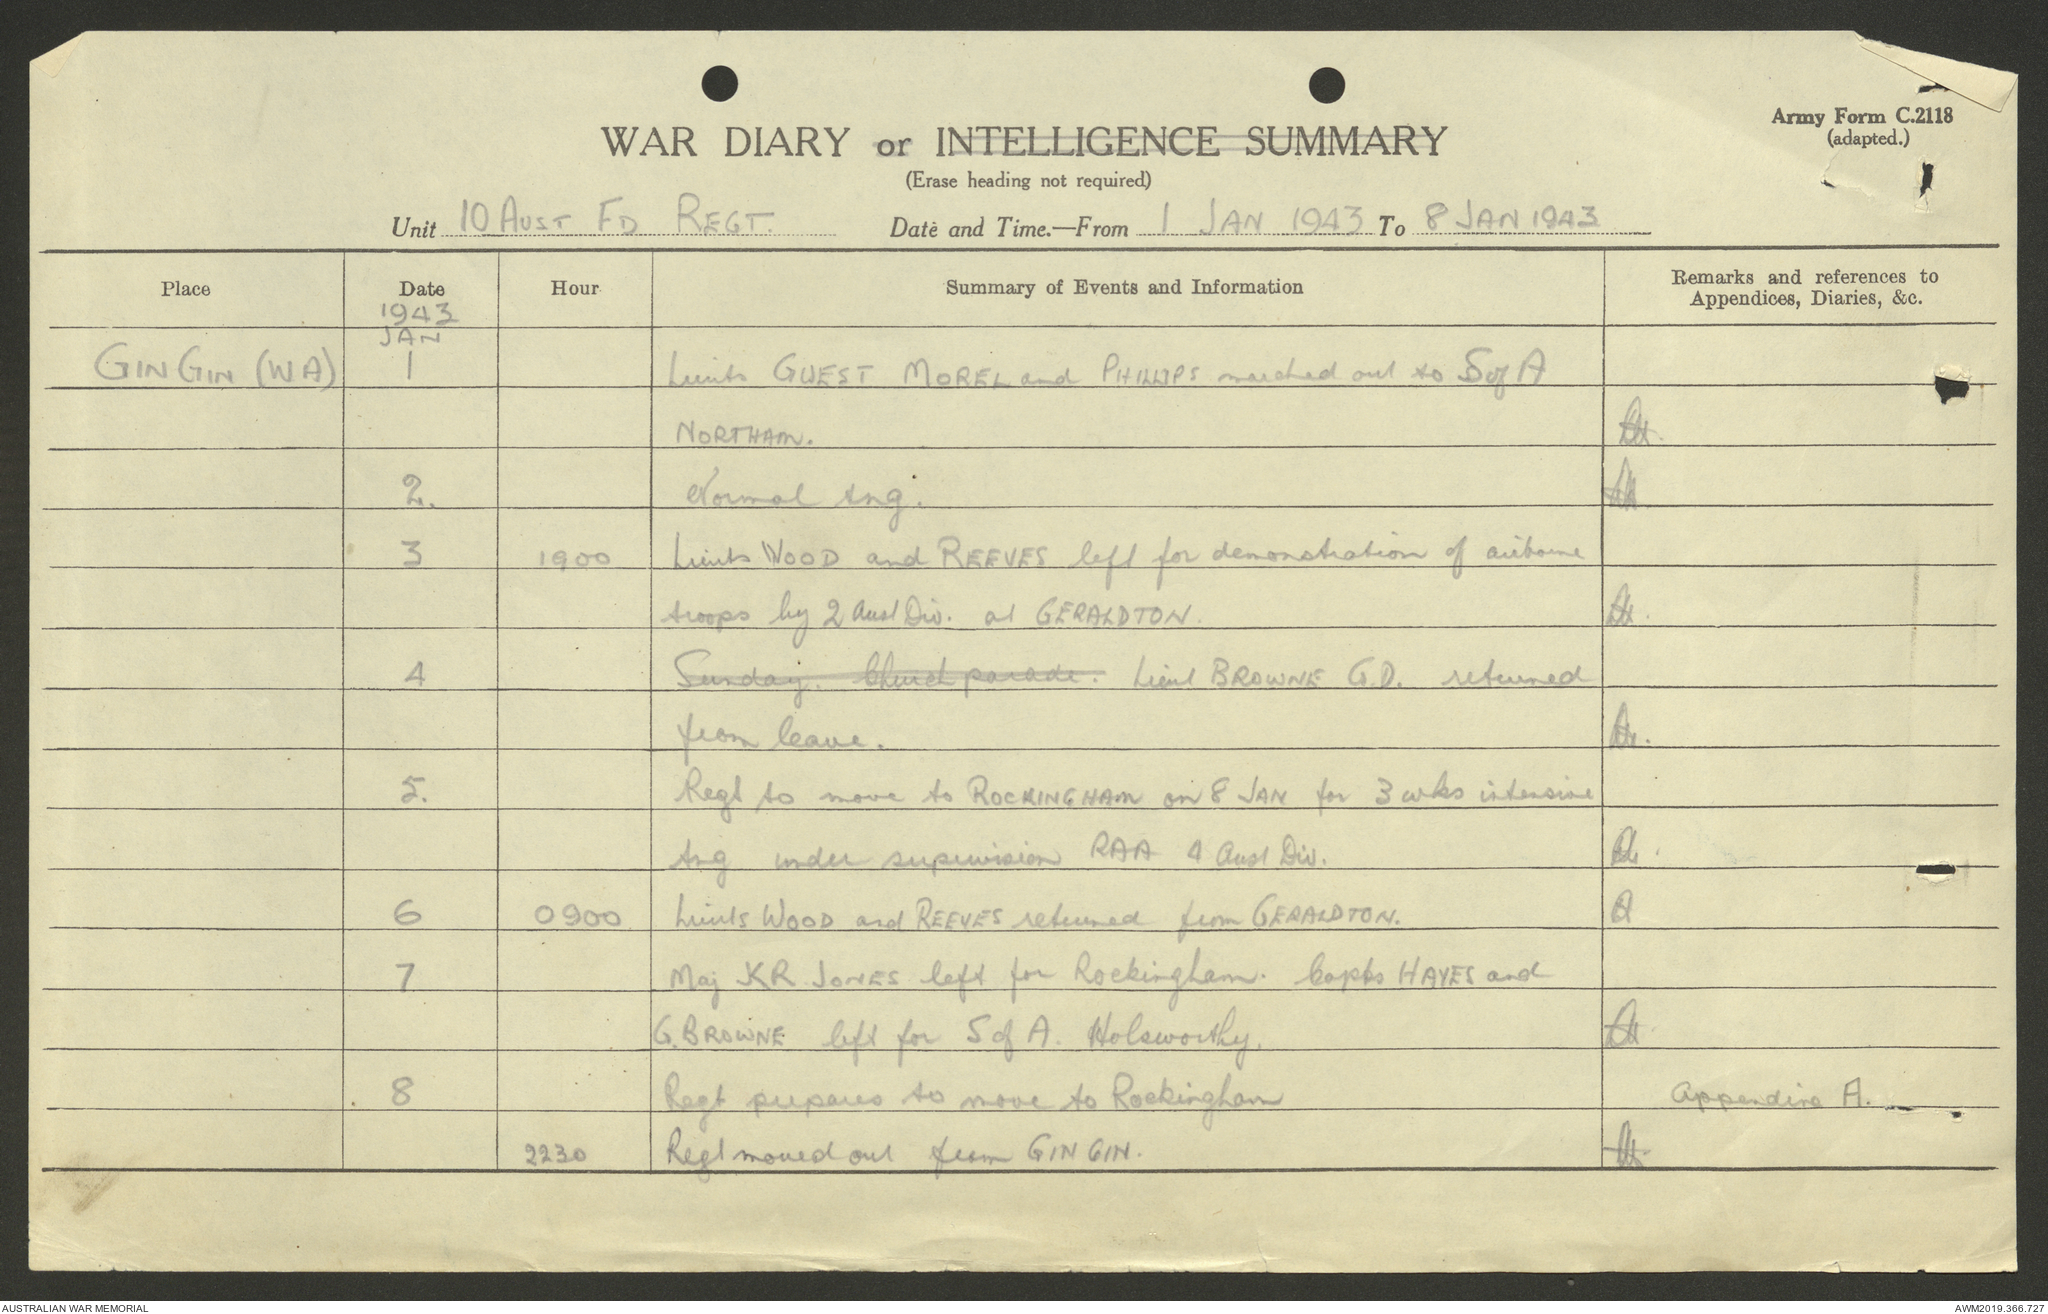 Army Form C.2118
(adapted.)
WAR DIARY or INTELLIGENCE SUMMARY
(Erase heading not required)
Unit 10 AUST FD REGT. Date and Time.—From 1 JAN 1943 To 8 JAN 1943
Place Date Hour Summary of Events and Information Remarks and references to Appendices, Diaries, &c.
1943
JAN
GIN GIN (WA) 1 Lieuts GUEST MOREL and PHILLIPS marched out to S of A
NORTHAM.
2. Normal tng.
3 1900 Lieuts WOOD and REEVES left for demonstration of airborne
troops by 2 Aust Div. at GERALDTON.
4 Sunday. Church parade. Lieut BROWNE G.D. returned
from leave.
5. Regt to move to ROCKINGHAM on 8 JAN for 3 wks intensive
tng under supervision RAA 4 Aust Div.
6 0900 Lieuts WOOD and REEVES returned from GERALDTON.
7 Maj KR JONES left for Rockingham. Capts HAYES and
G. BROWNE left for S of A. Holsworthy.
8 Regt prepares to move to Rockingham Appendice A.
2230 Regt moved out from GIN GIN.
AUSTRALIAN WAR MEMORIAL AWM2019.366.727